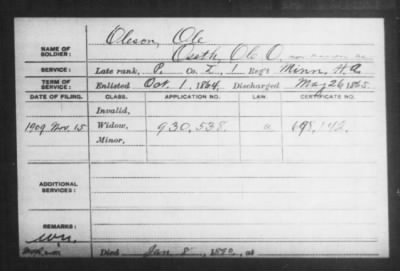 Oleson, Ole
NAME OF SOLDIER: Ole O.
SERVICE: Late rank, P. Co. I, 1 Reg't Minn. H.A.
TERM OF SERVICE: Enlisted Oct. 1, 1864, Discharged May 26 1865.
DATE OF FILING. CLASS. APPLICATION NO. LAW. CERTIFICATE NO.
Invalid,
1909 Nov. 15 Widow, 930,538
Minor,
ADDITIONAL SERVICES:
REMARKS:
Died Jan 8, at